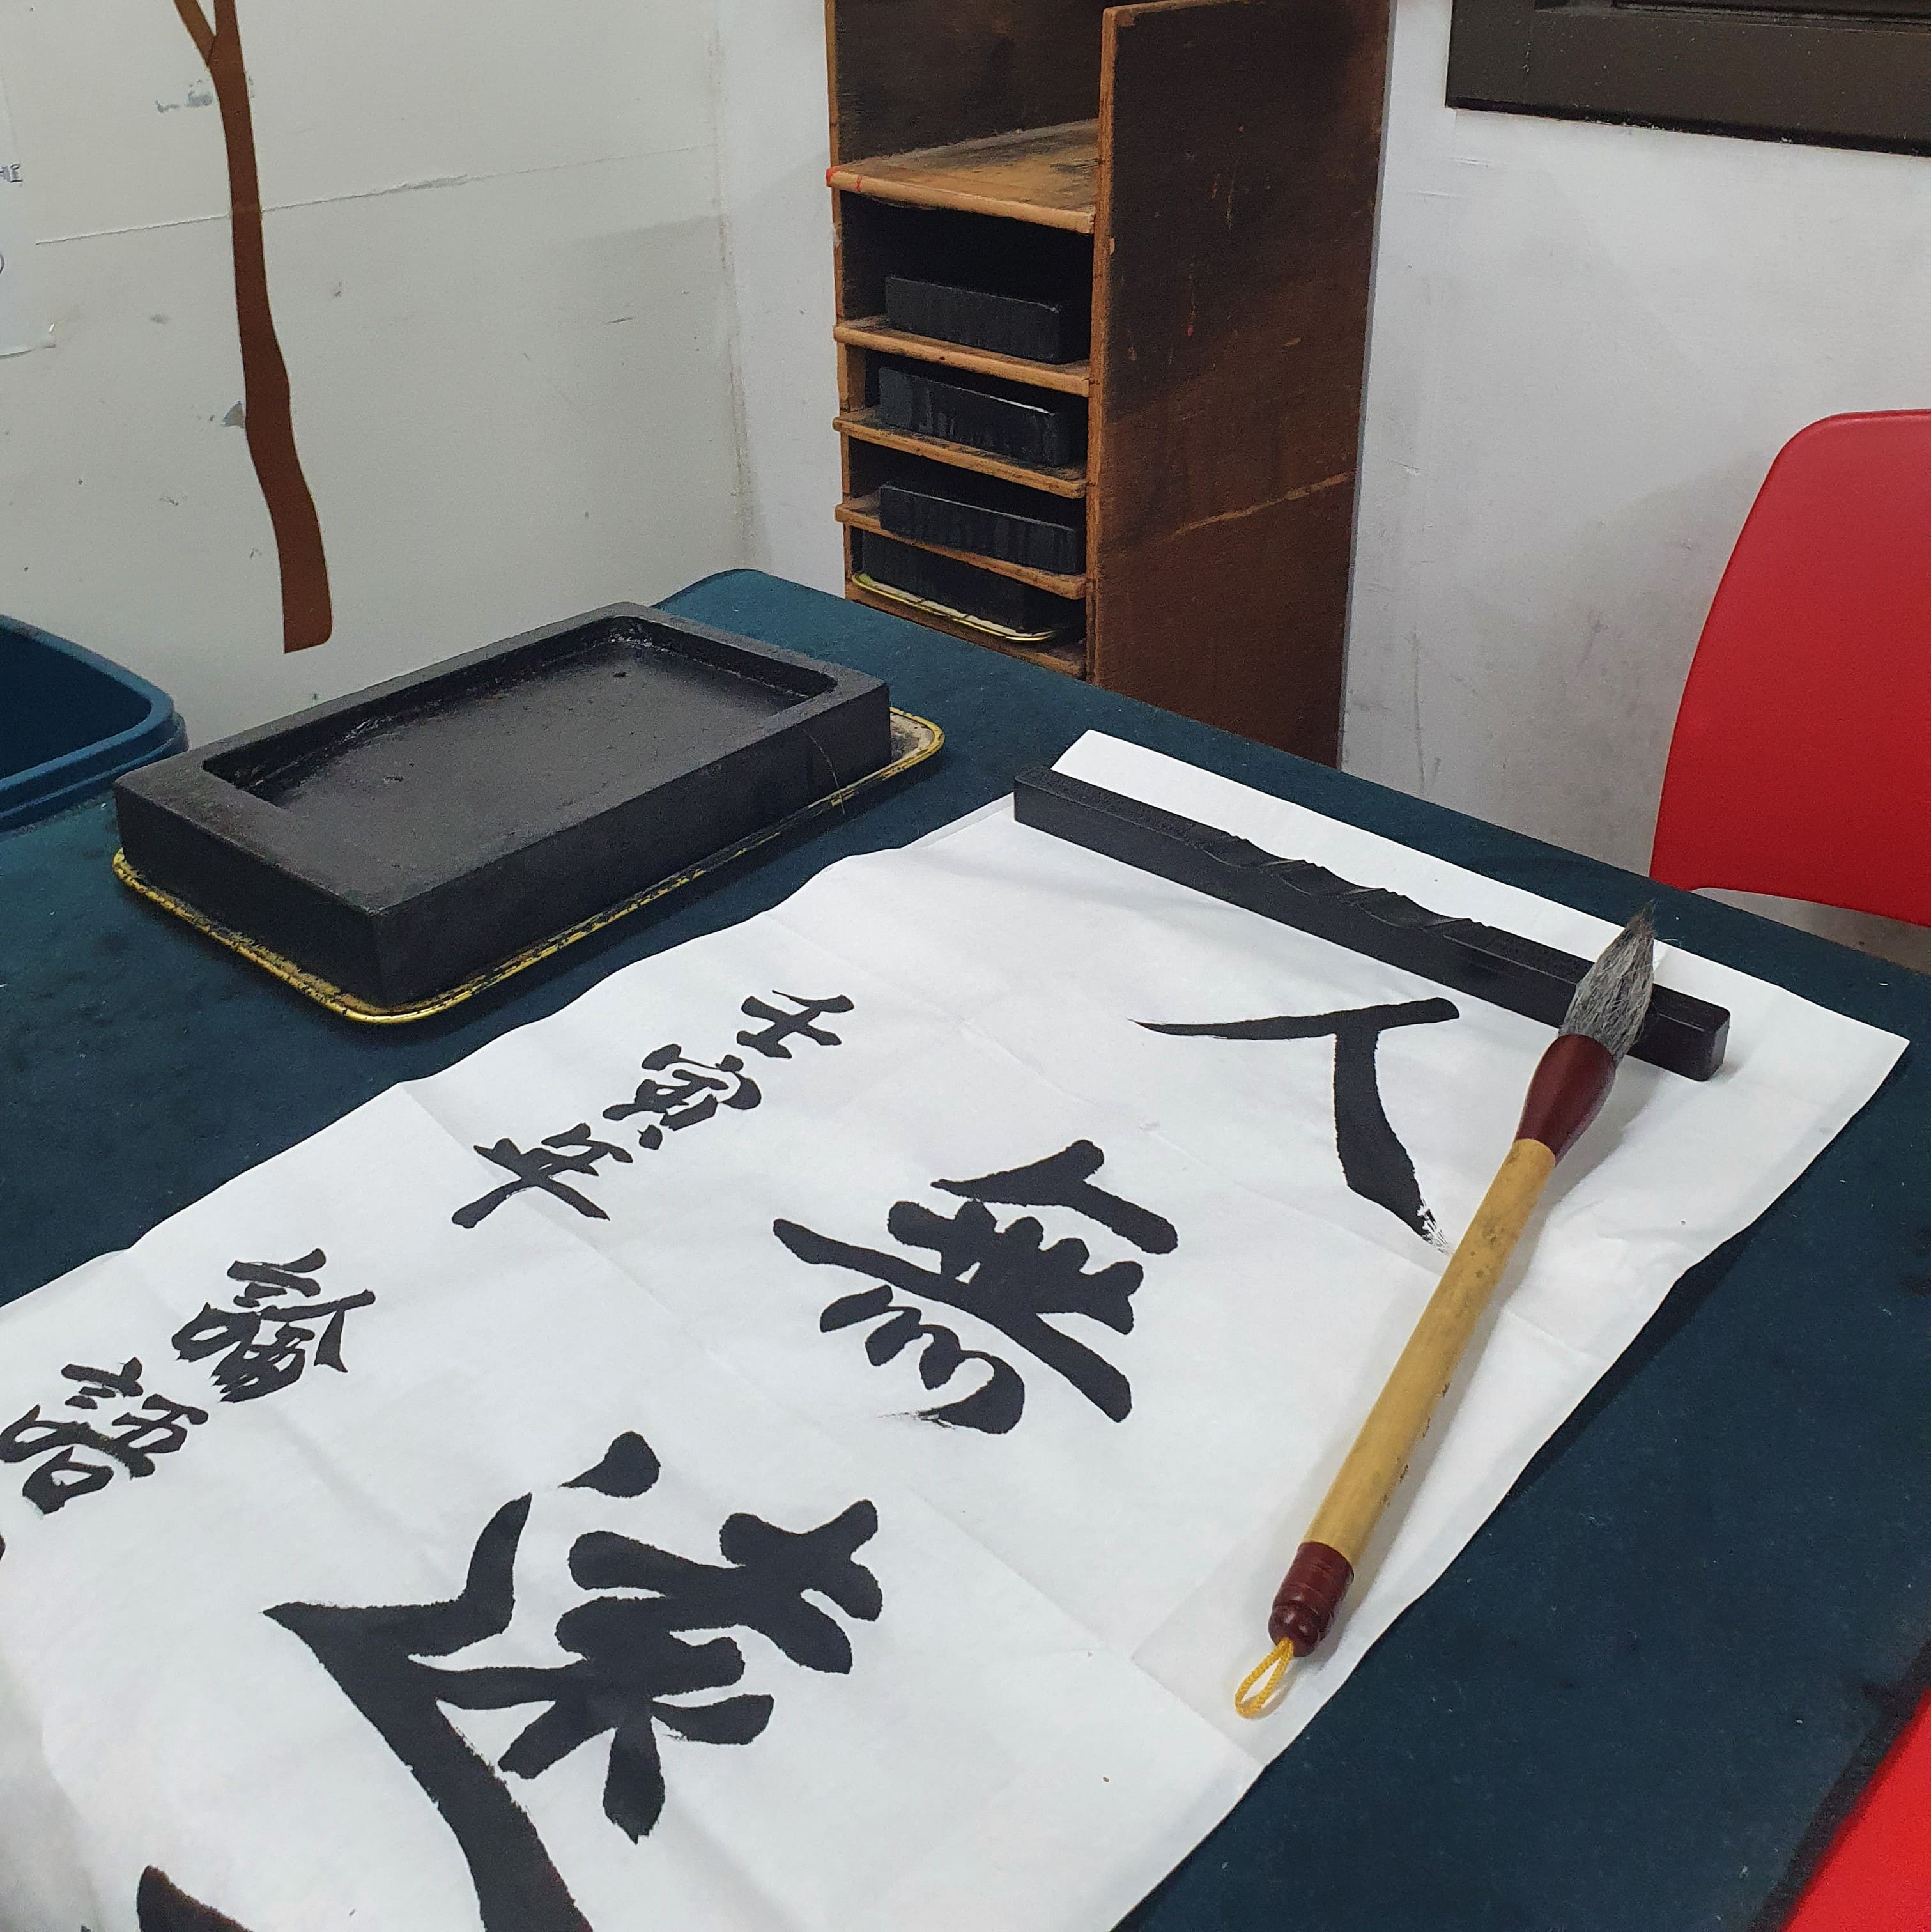 人無遠
壬寅年論語